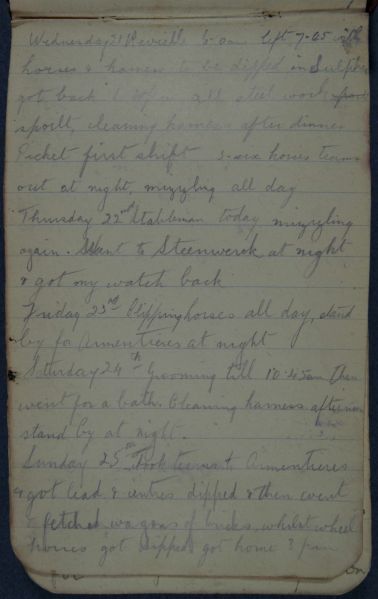 Wednesday 21 Reveille 5 am left 7-45 with
horses & harness to be dipped in Sulphur
got back 1 all steel work
spoilt, cleaning harness after dinner
Picket first shift 3-six horses teams
out at night, mizzling all day
Thursday 22nd Stableman today mizzling
again. Went to Steenwerck at night
& got my watch back
Friday 23rd Clipping horses all day, stand
by for Armentieres at night
Saturday 24th Grooming till 10.45am then
went for a bath. Cleaning harness afternoon
stand by at night.
Sunday 25th Took teams to Armentieres
& got lead & centres dipped & then went
& fetched wagons of bricks, whilst wheel
horses got dipped got home 3 pm